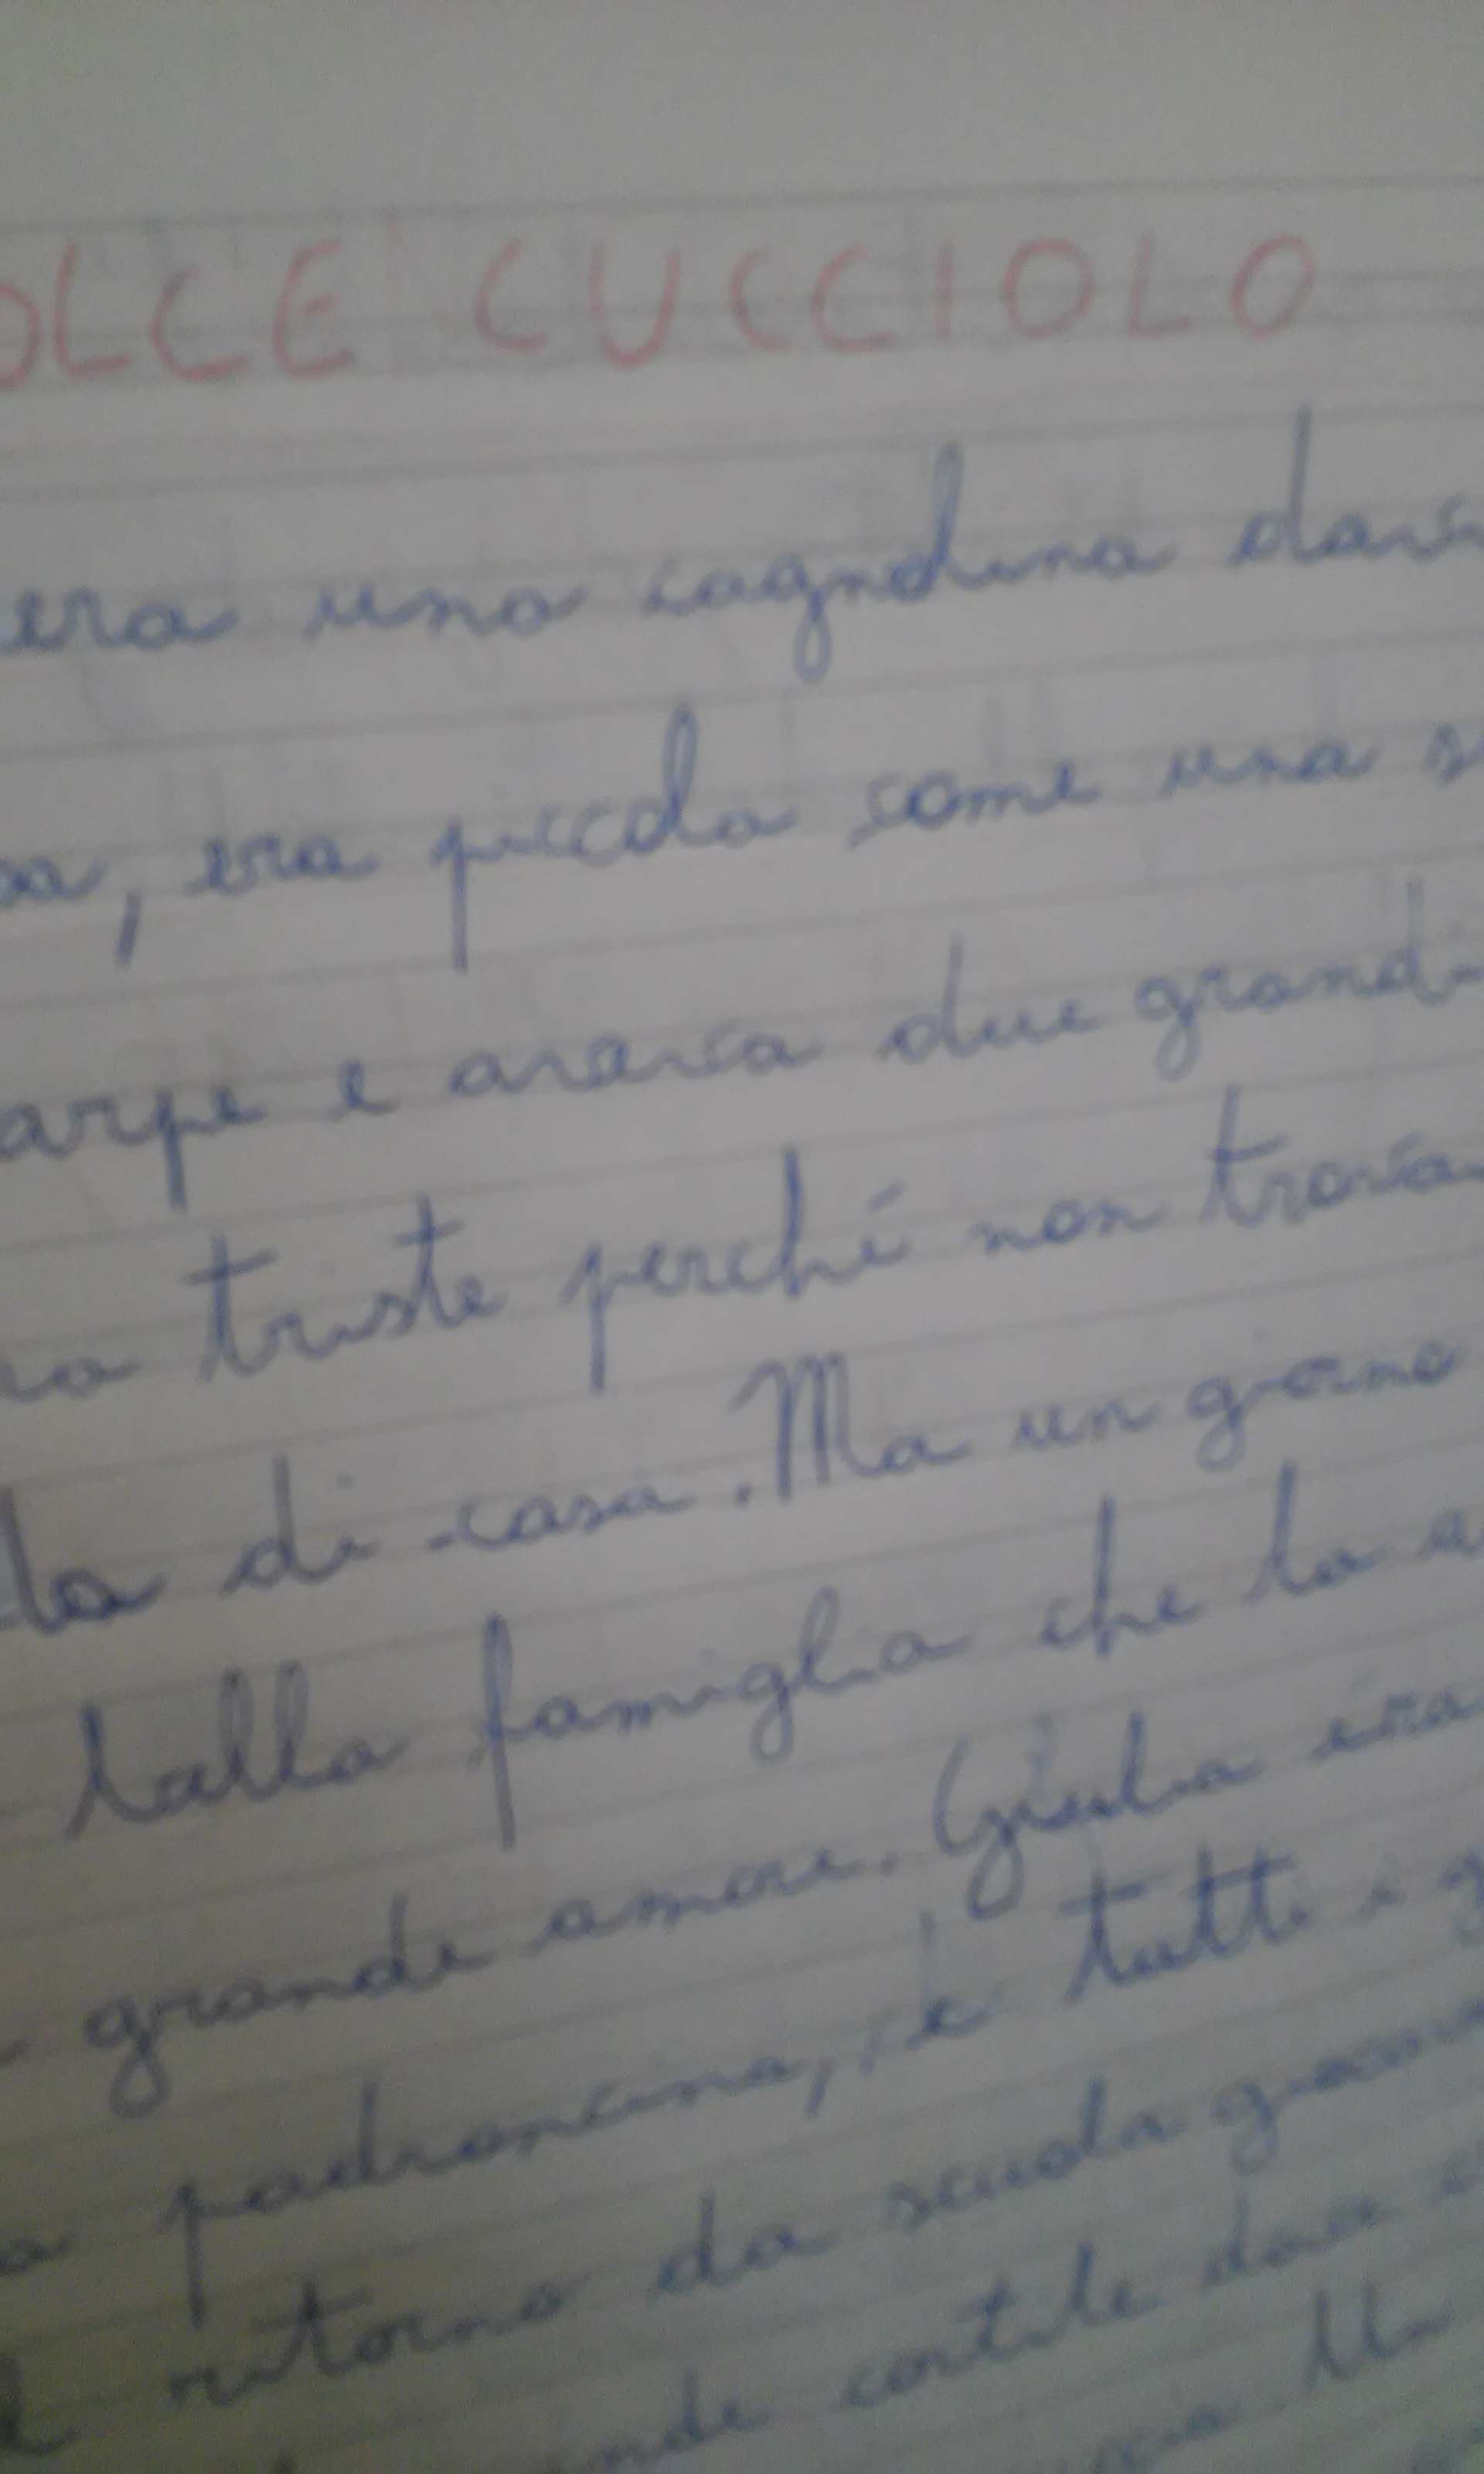 OLCE CUCCIOLO
era una cagnolina dav
sa, era piccola come una s
arpe e aveva due grandi
ra triste perché non trova
la di casa. Ma un giorno
lalla famiglia che la a
grande amore. Giulia era
a padroncina, e tutti i g
l ritorno da scuola gioca
nde cortile dove
Un